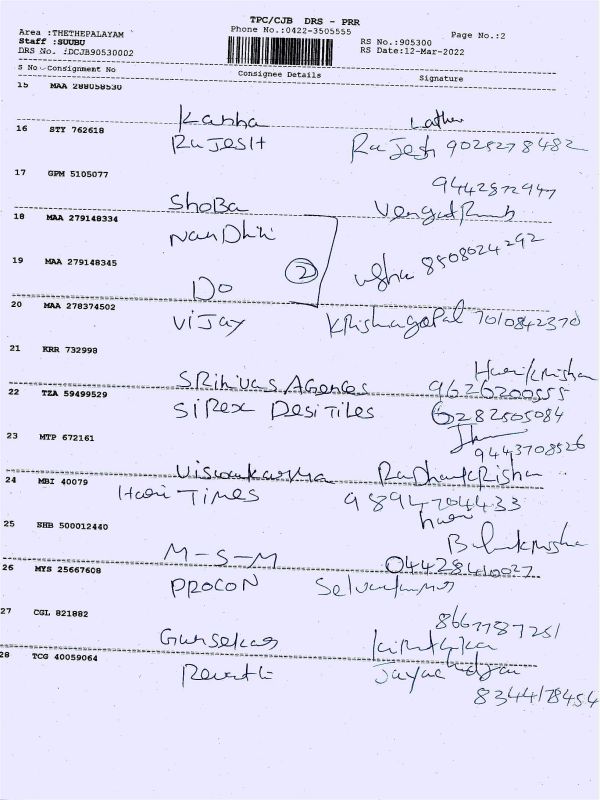 TPC/CJB DRS - PRR
Area :THETHEPALAYAM
Phone No.:0422-3505555
Page No.:2
Staff :SUUBU
RS No.:905300
DRS No. :DCJB90530002
RS Date:12-Mar-2022
S No Consignment No Consignee Details Signature
15 MAA 288058530
Kabha
16 STY 762618
RaJesH RaJesh 9028278482
17 GPM 5105077
9442872947
ShoBa
18 MAA 279148334
NanDhini
19 MAA 279148345
2 8508024292
Do
20 MAA 278374502
ViJay Krishnagopal 7010842370
21 KRR 732998
Harikrishan
SRinivas Agences 9626200555
22 TZA 59499529
SiREX DesiTiles 6282505084
23 MTP 672161
9443708526
Viswakarma RadhakRishan
24 MBI 40079
Hari Times 9894704433
hari
25 SHB 500012440
M-S-M 04428410027
26 MYS 25667608
PROCON Selvakumar
27 CGL 821882
8667787251
Gunsekar
28 TCG 40059064
8344178454